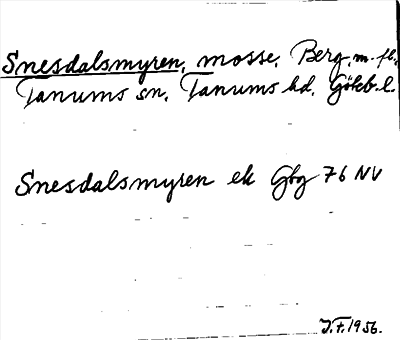 Snesdalsmyren, mosse, Berg, m. fl.,
Tanums sn, Tanums hd, Göteb. l.
Snesdalsmyren ek Gbg 76 NV
J.F. 1956.